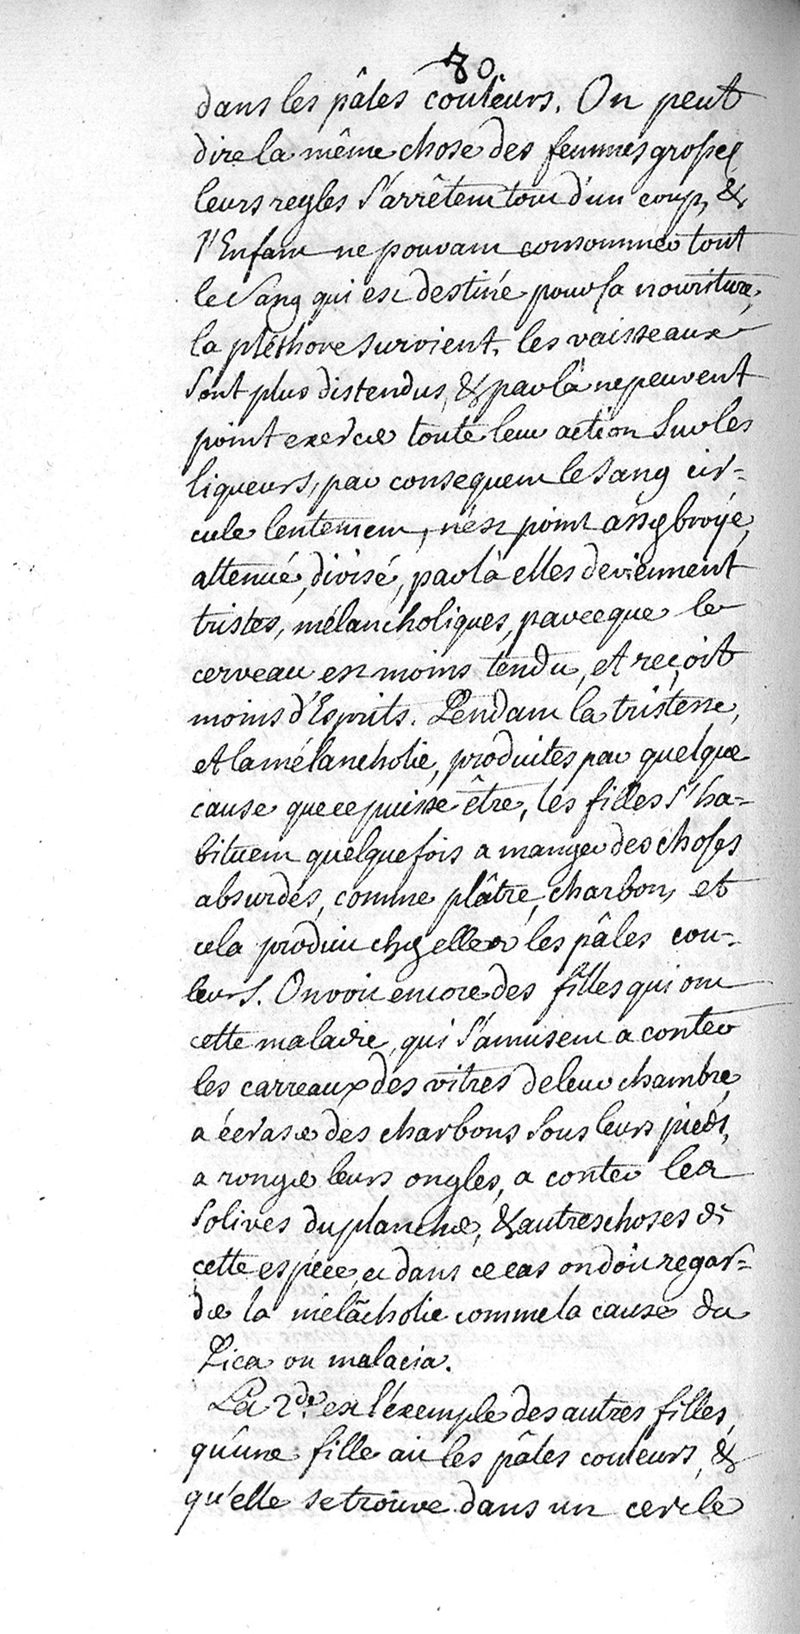 80
dans les pâles couleurs. On peut
dire la même chose des femmes grosses
leurs regles s'arrêtent tout d'un coup, &
l'Enfant ne pouvant consommer tout
le Sang qui est destiné pour sa nourriture,
la pléthore survient, les vaisseaux
sont plus distendus, & par là ne peuvent
point exercer toute leur action sur les
liqueurs, par consequent le sang cir=
cule lentement, n'est point assez broyé,
attenué, divisé, par là elles deviennent
tristes, mélancholiques, parceque le
cerveau est moins tendu, et reçoit
moins d'Esprits. Pendant la tristesse,
et la mélancholie, produites par quelque
cause que ce puisse être, les filles s'ha=
bituent quelquefois a manger des choses
absurdes, comme plâtre, charbon, et
cela produit chez elles les pâles cou=
leurs. On voit encore des filles qui ont
cette maladie, qui s'amusent a conter
les carreaux des vitres de leur chambre,
a écraser des charbons sous leurs pieds,
a ronger leurs ongles, a conter les
solives du plancher, & autres choses de
cette espèce, et dans ce cas on doit regar=
der la melãcholie comme la cause du
Pica ou malacia.
La 2de. est l'éxemple des autres filles,
qu'une fille ait les pâles couleurs, &
qu'elle se trouve dans un cercle